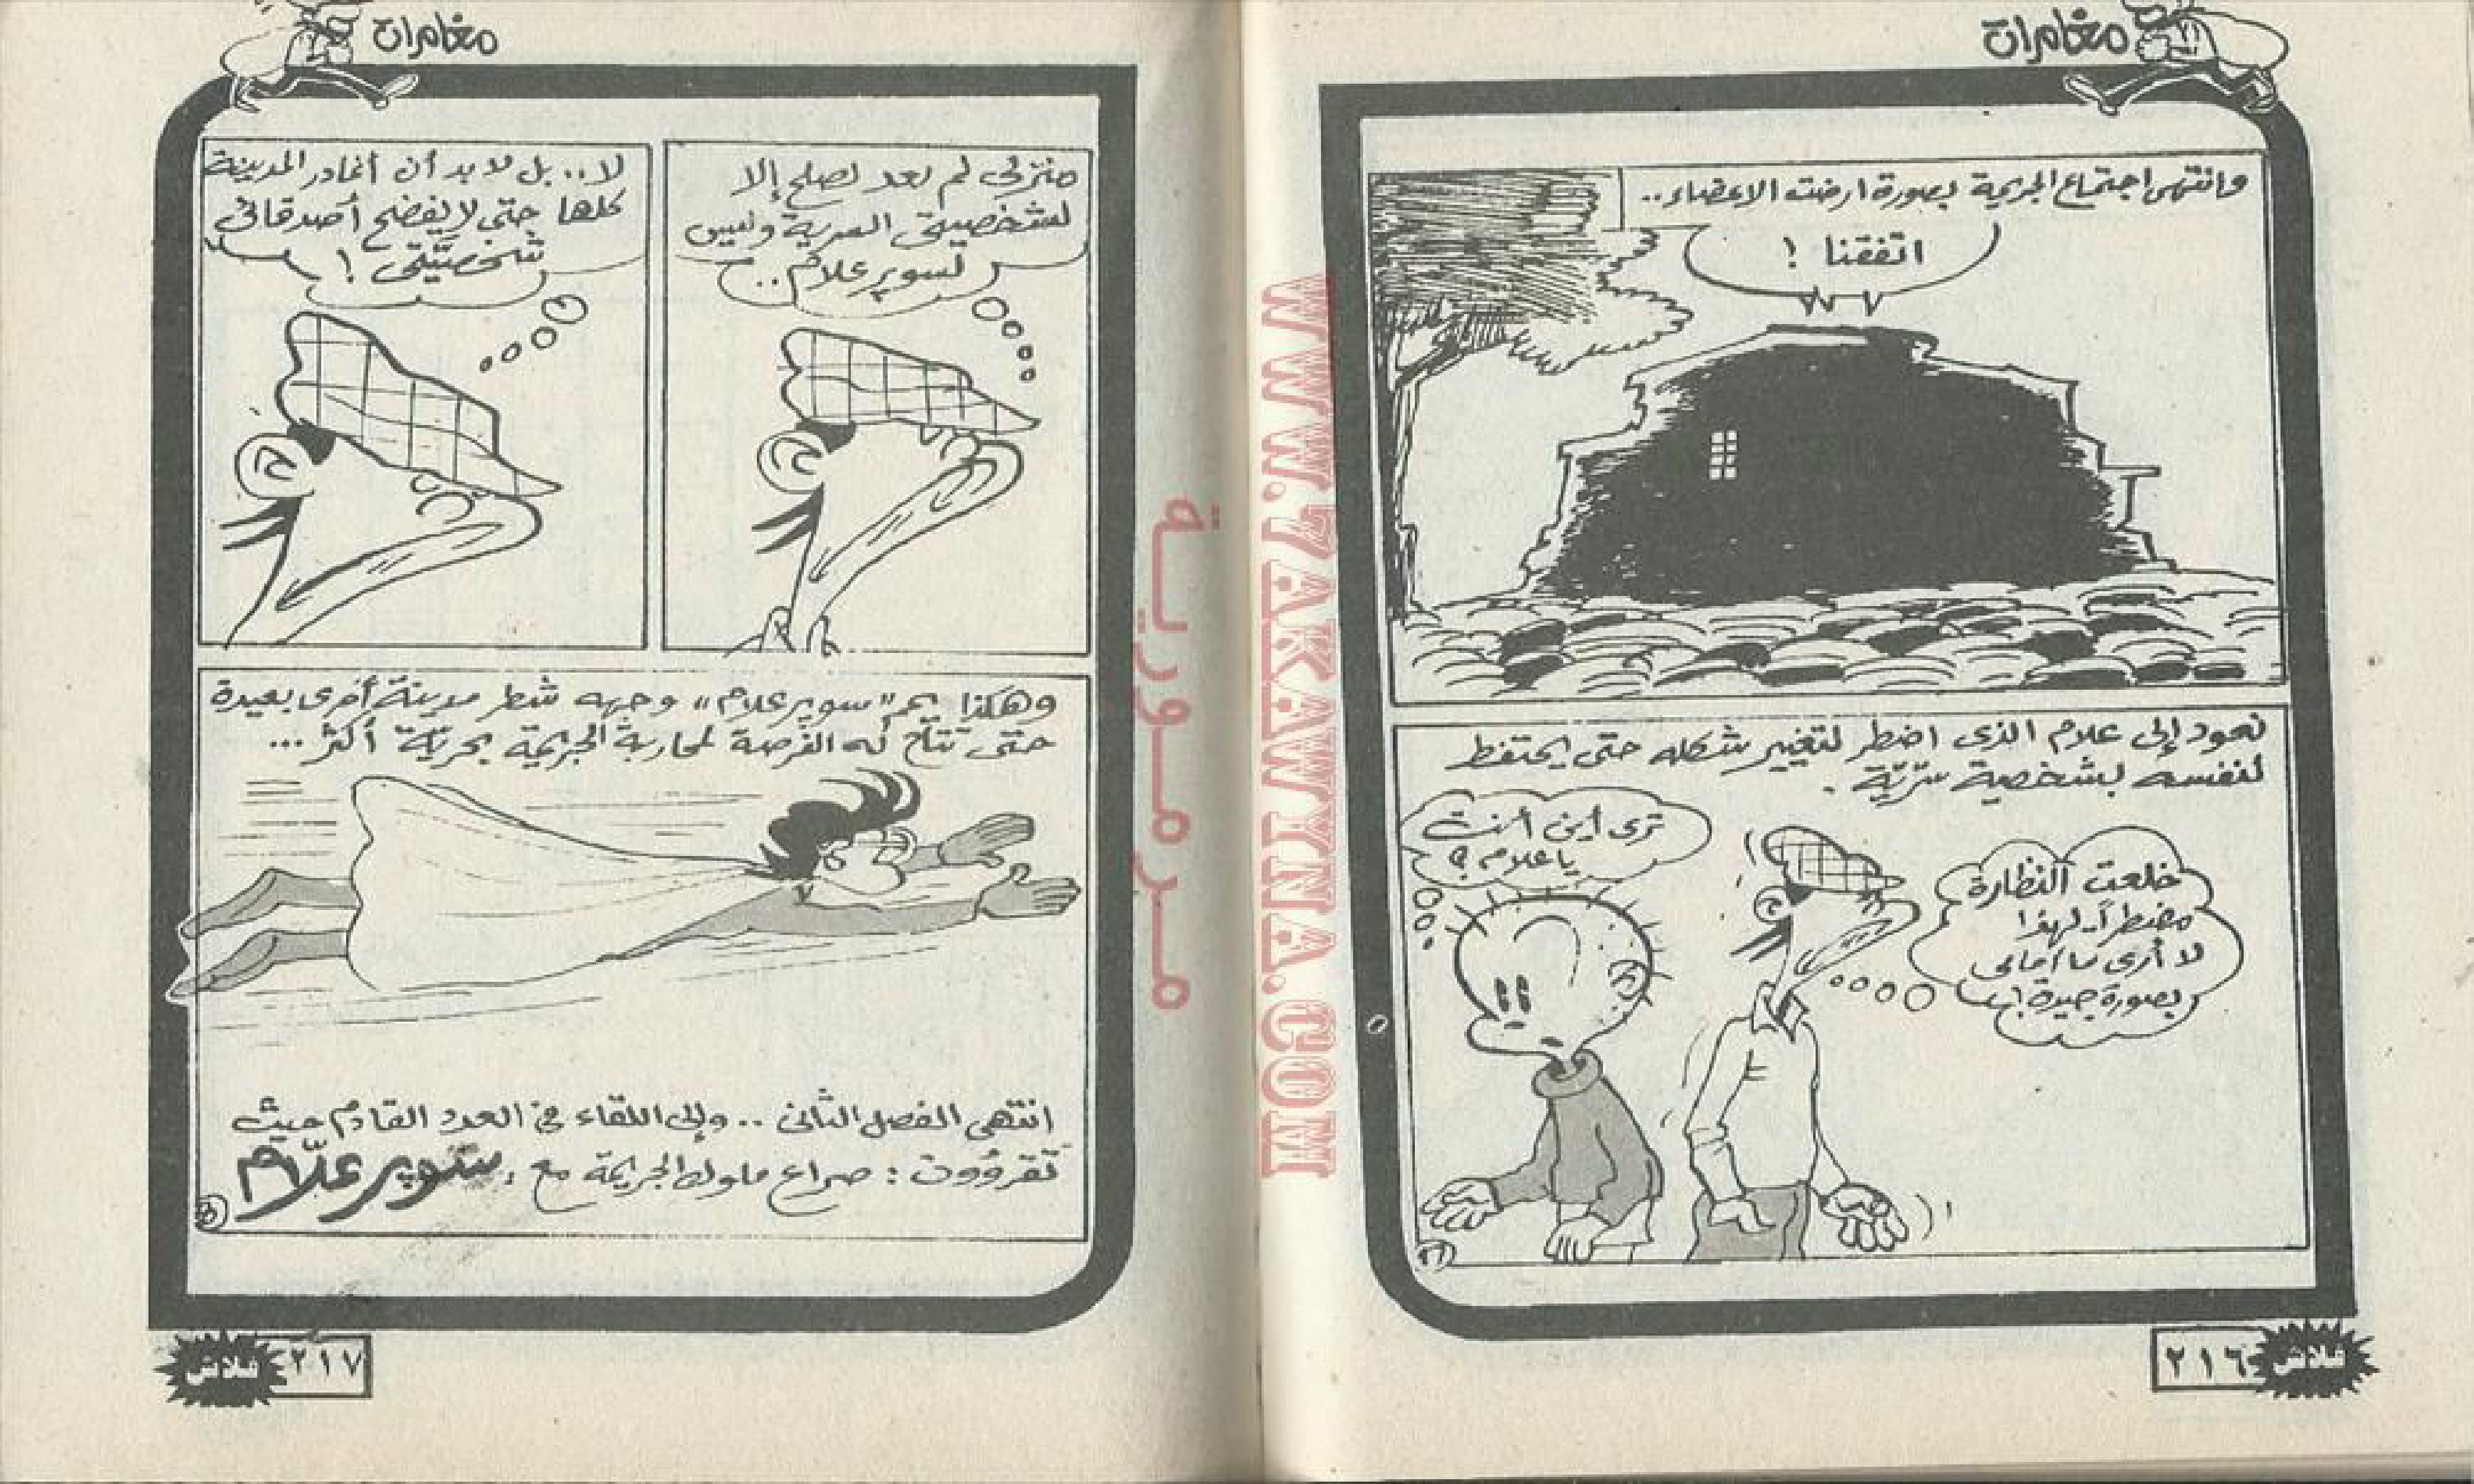 مغامرات
وانتهى اجتماع الجريمة بصورة ارضت الاعضاء..
اتفقنا !
نعود إلى علام الذى اضطر لتغيير شكله حتى يحتفظ
لنفسه بشخصية سرّيّة .
خلعت النظارة
مضطراً.. لهذا
لا أرى ما أمامى
بصورة جيدة !..
ترى أين أنت
يا علام ؟
٢١٦
فلاش
مغامرات
منزلى لم يعد يصلح إلا
لشخصيتى السرية وليس
لسوبر علام..
لا.. بل لابد أن أغادر المدينة
كلها حتى لا يفضح أصدقائى
شخصيّتى !
وهكذا يمم "سوبر علام" وجهه شطر مدينة أخرى بعيدة
حتى تتاح له الفرصة لمحاربة الجريمة بحريّة أكثر...
انتهى الفصل الثانى .. وإلى اللقاء فى العدد القادم حيث
تقرؤون : صراع ملوك الجريمة مع ، سوبر علّام
٢١٧
فلاش
WWW.7AKAWINA.COM
مرمورية